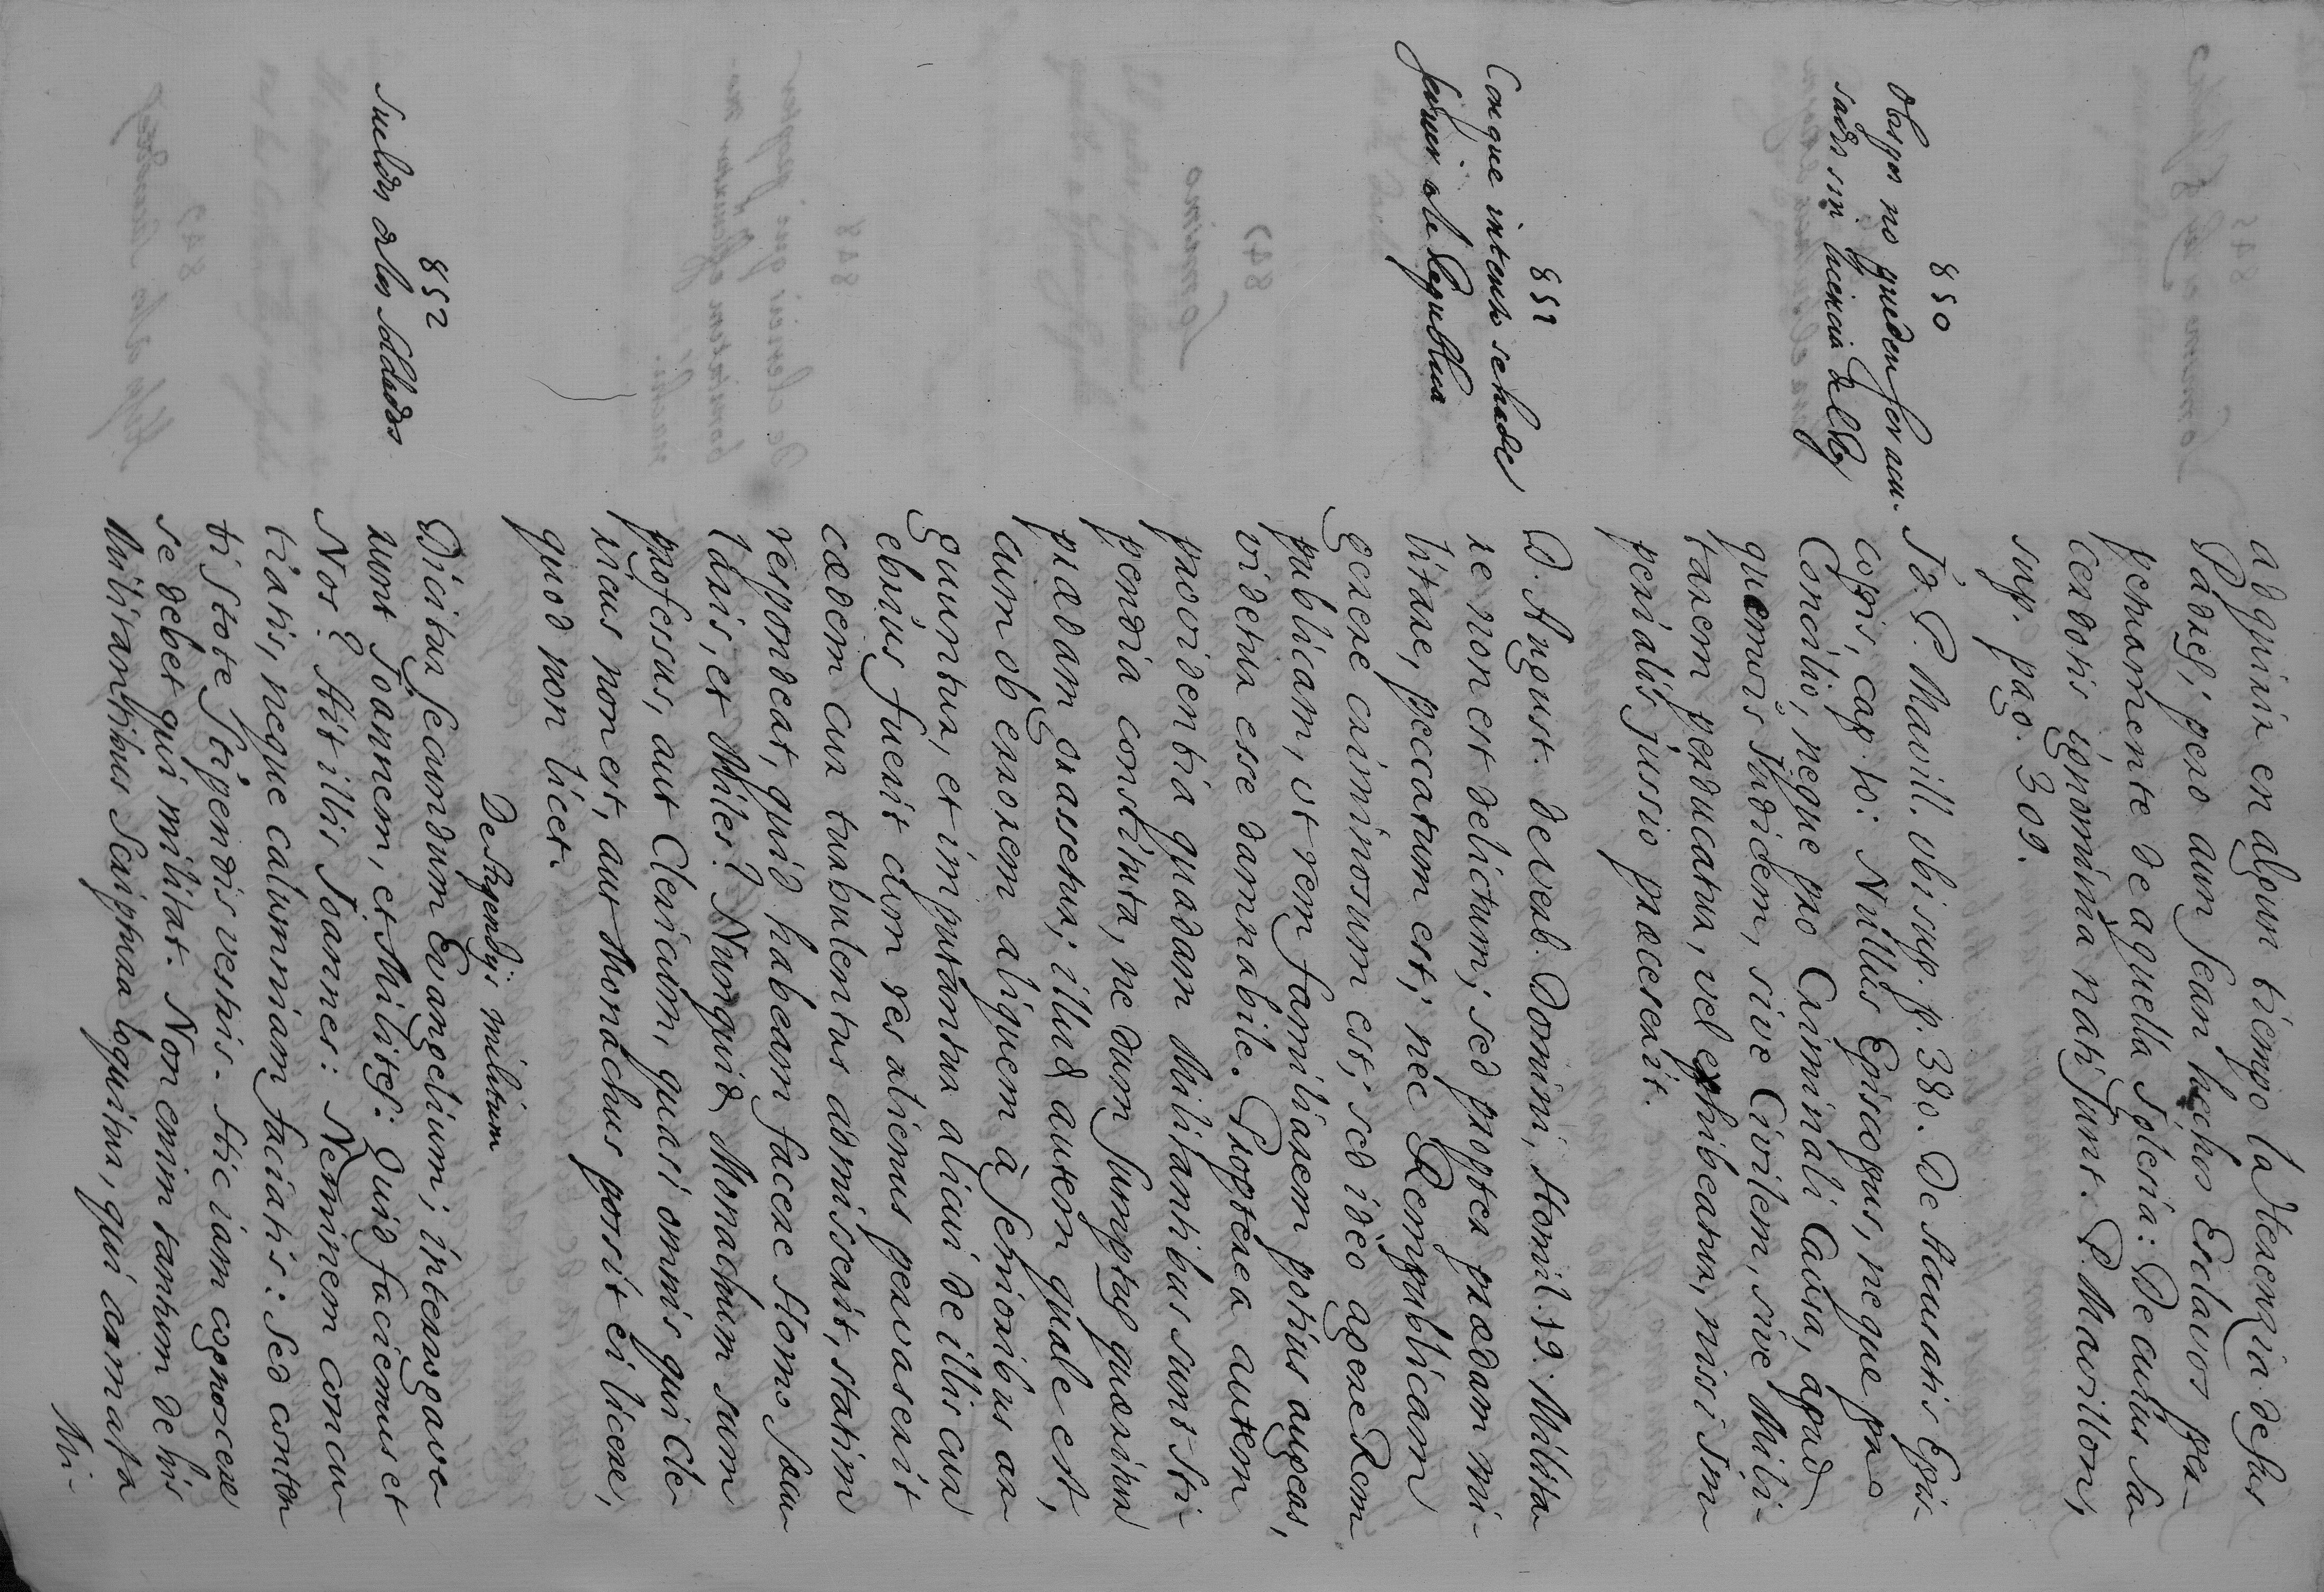 adquirir en algun tiempo la Herenzia de sus
Padres; pero aun sean hechos Esclavos per-
petuamente de aquella Iglesia: De cuius Sa
cerdotis ignominia nati sunt. P. Mavillon,
sup. pag. 309.
850
Obispos no pueden ser acu-
sados sin licencia del Rey
Id. P. Mavill. ubi sup. p. 380. De Accusatis Epis-
copis, cap. 10: Nullus Episcopus, neque pro
Concilio, neque pro Criminali Causa, apud
quemvis Iudicem, sive Civilem, sive Mili-
tarem perducatur, vel exhibeatur, nisi Im
perialis jussio præceserit.
851
Con que intento se ha de
servir a la Republica
D. August. de verb. Domini, Homil. 19. Milita
re non est delictum; sed propter prædam mi-
litare, peccatum est; nec Rempublicam
gerere criminosum est; sed ideo agere Rem
publicam, ut rem familiarem potius augeas,
videtur esse damnabile. Propterea autem
providentia quadam Militantibus sunt sti-
pendia constituta, ne dum sumptus quæritur
prædam grassetur; illud autem quale est,
cum ob errorem aliquem à senioribus ar
guuntur, et imputantur alicui de illis cur
ebrius fuerit cum res alienas pervaserit
cædem cur turbulentus admisserit, statim
respondeat, quid habeam facere Homo Sæcu
laris, et Miles? Nunquid Monachum sum
professus, aut Clericum, quasi omnis qui Cle-
ricus non est, aut Monachus possit ei licere,
quod non licet.
De Stipendijs militum
852
Sueldos a los soldados
Dicitur secundum Evangelium; interrogave
runt Joannem, et Milites: Quid faciemus et
Nos? Ait illis Joannes: Neminem concu
tiatis, neque calumniam faciatis: sed conten
ti stote stipendis vestris. Hic iam cognoscere
se debet qui militat. Non enim tantum de his
Militantibus Scriptura loquitur, qui armata
Mi-